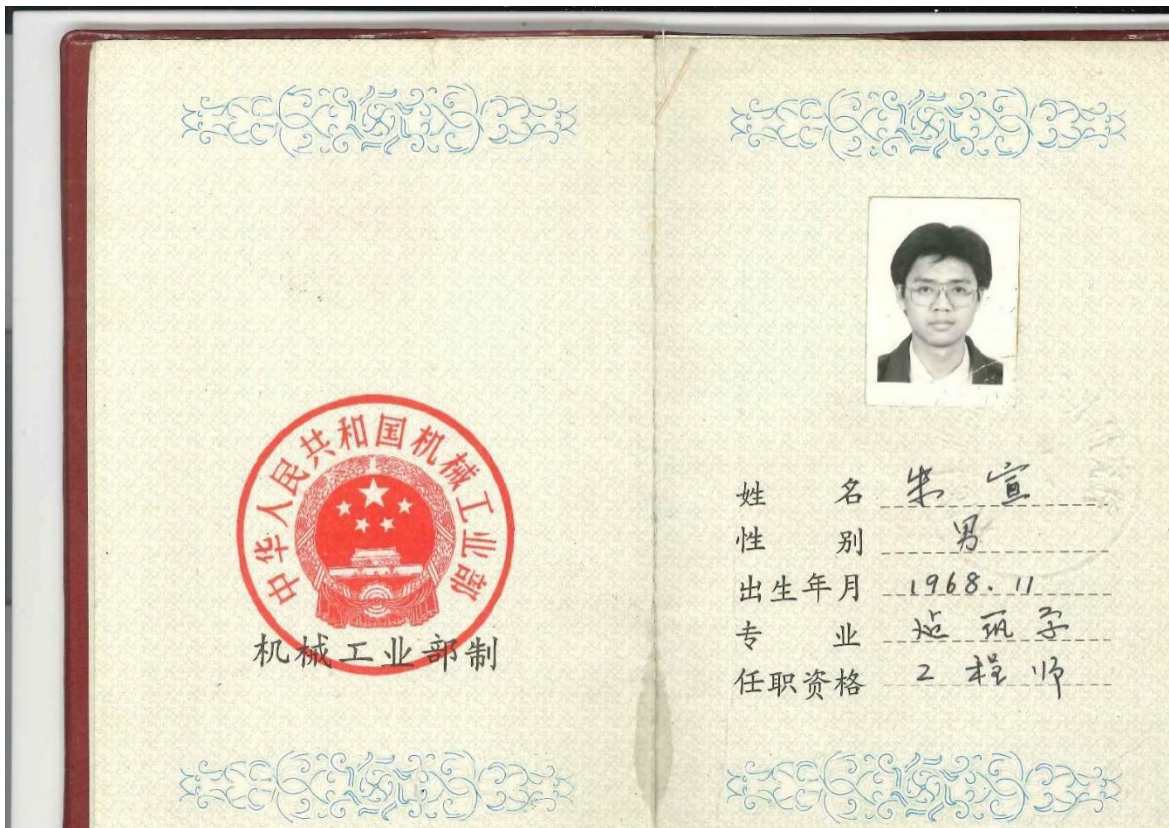 中华人民共和国机械工业部
机械工业部制
姓 名 朱 宣
性 别 男
出生年月 1968.11
专 业 建筑学
任职资格 工程师